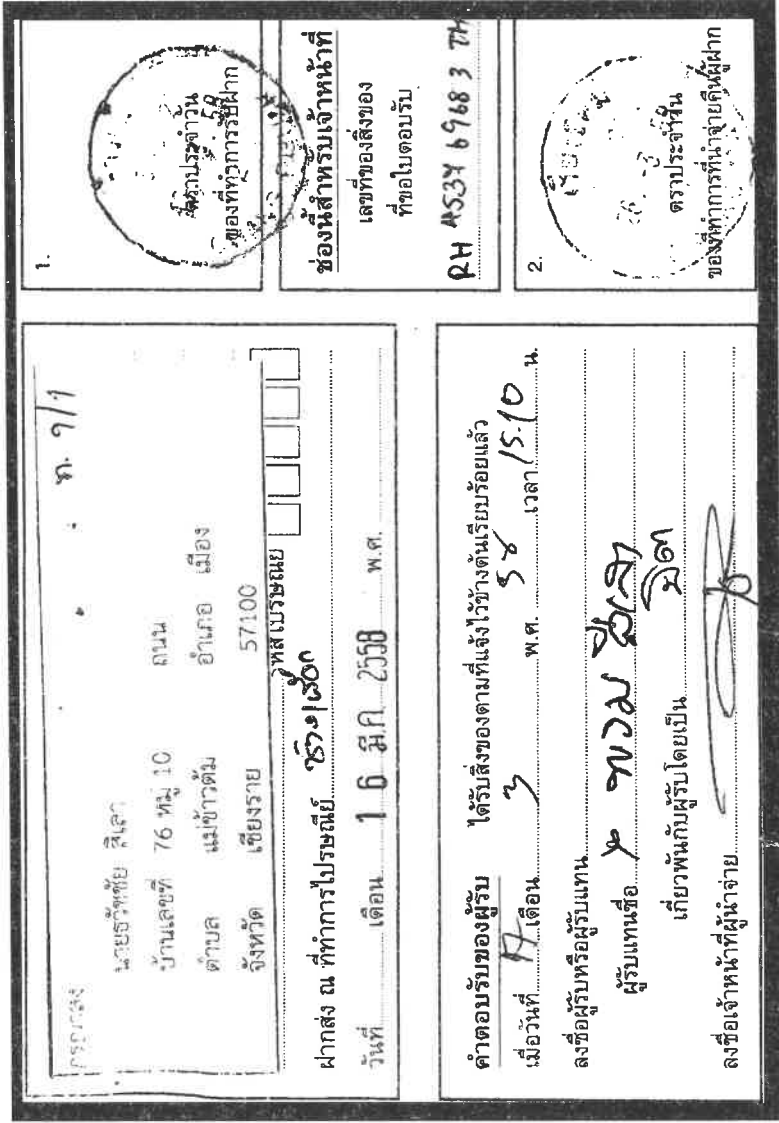 ท. ๑/๑
นายธวัชชัย สีเลา
บ้านเลขที่ 76 หมู่ 10 ถนน
ตำบล แม่ข้าวต้ม อำเภอ เมือง
จังหวัด เชียงราย 57100
รหัสไปรษณีย์
ฝากส่ง ณ ที่ทำการไปรษณีย์
วันที่ 16 มี.ค. 2558 เดือน พ.ศ.
คำตอบรับของผู้รับ ได้รับสิ่งของตามที่แจ้งไว้ข้างต้นเรียบร้อยแล้ว
เมื่อวันที่ 17 เดือน 3 พ.ศ. 58 เวลา 15.10 น.
ลงชื่อผู้รับหรือผู้รับแทน
ผู้รับแทนชื่อ สีเลา
เกี่ยวพันกับผู้รับโดยเป็น บิดา
ลงชื่อเจ้าหน้าที่ผู้นำจ่าย
1.
ตราประจำวัน
ของที่ทำการรับฝาก
ช่องนี้สำหรับเจ้าหน้าที่
เลขที่ของสิ่งของ
ที่ขอใบตอบรับ
RH 4534 6968 3 TH
2.
ตราประจำวัน
ของที่ทำการที่นำจ่ายคืนผู้ฝาก